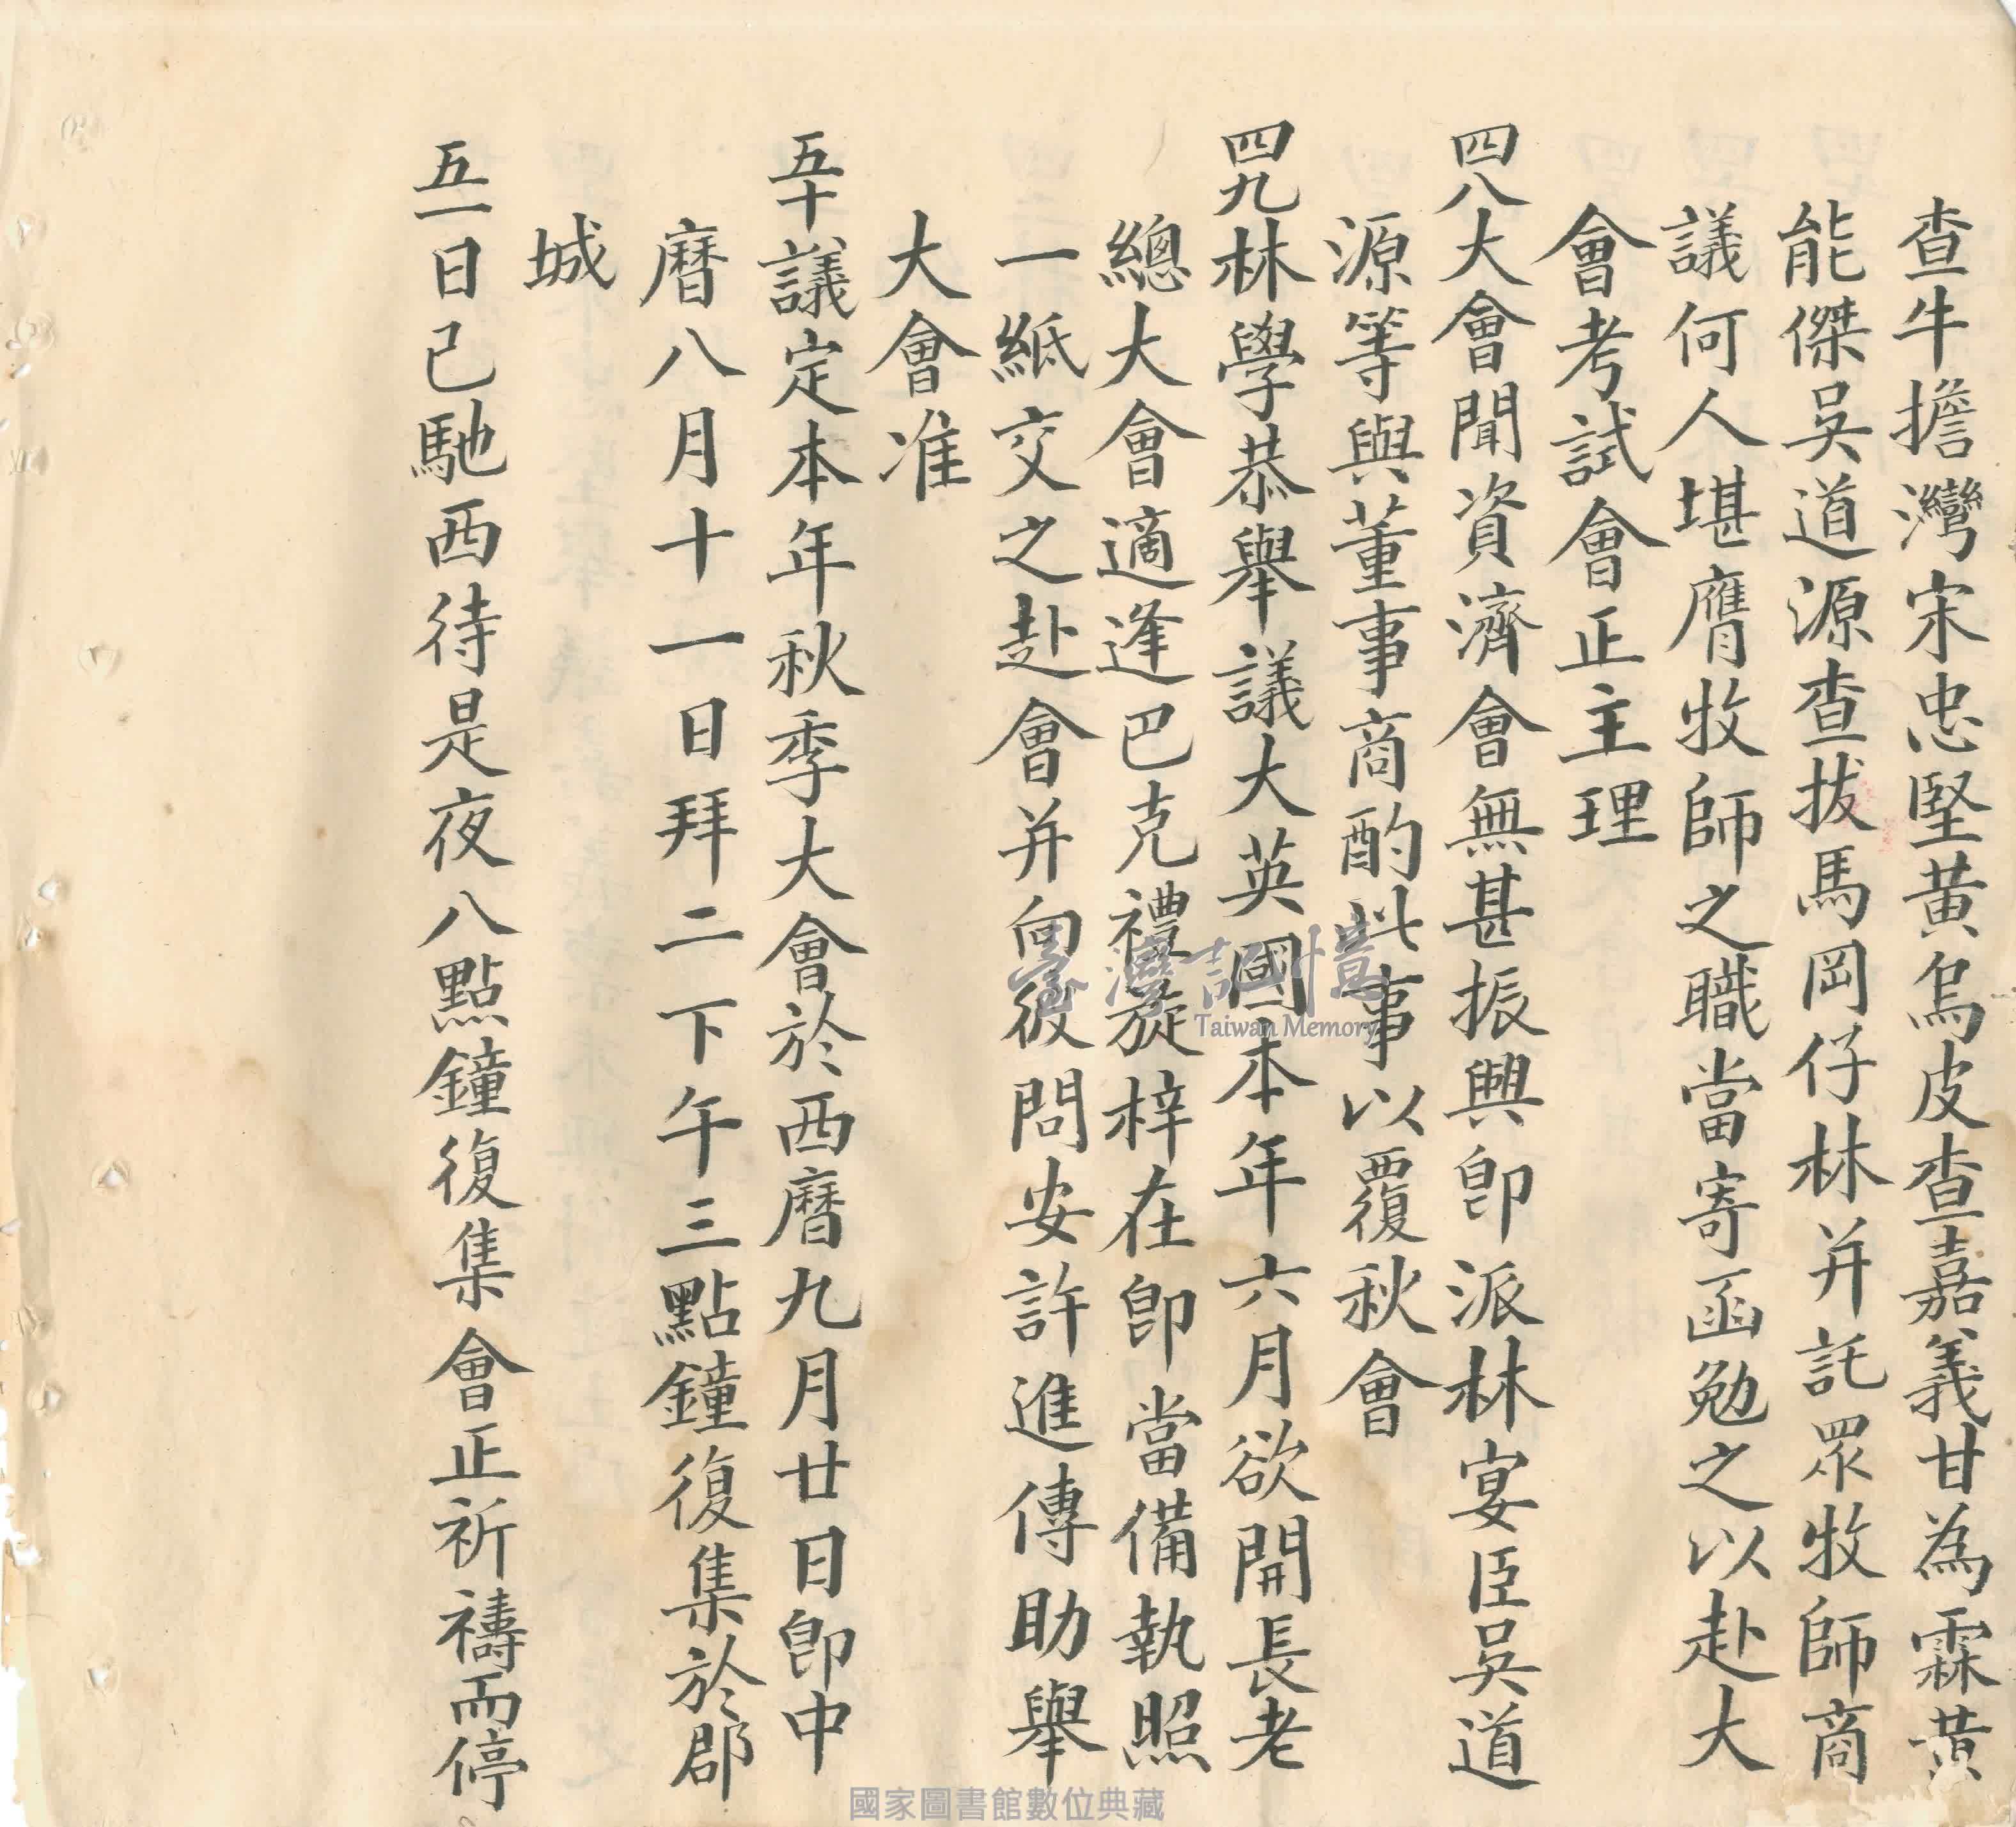 查牛擔灣宋忠堅黃烏皮查嘉義甘為霖黃
能傑吳道源查拔馬岡仔林并託眾牧師商
議何人堪膺牧師之職當寄函勉之以赴大
會考試會正主理
四八大會聞資濟會無甚振興即派林宴臣吳道
源等與董事商酌此事以覆秋會
四九林學恭舉議大英國本年六月欲開長老
總大會適逢巴克禮旋梓在即當備執照
一紙交之赴會并向彼問安許進傳助舉
大會准
五十議定本年秋季大會於西曆九月廿日即中
曆八月十一日拜二下午三點鐘復集於郡
城
五一日已馳西待是夜八點鐘復集會正祈禱而停
臺灣記憶
Taiwan Memory
國家圖書館數位典藏